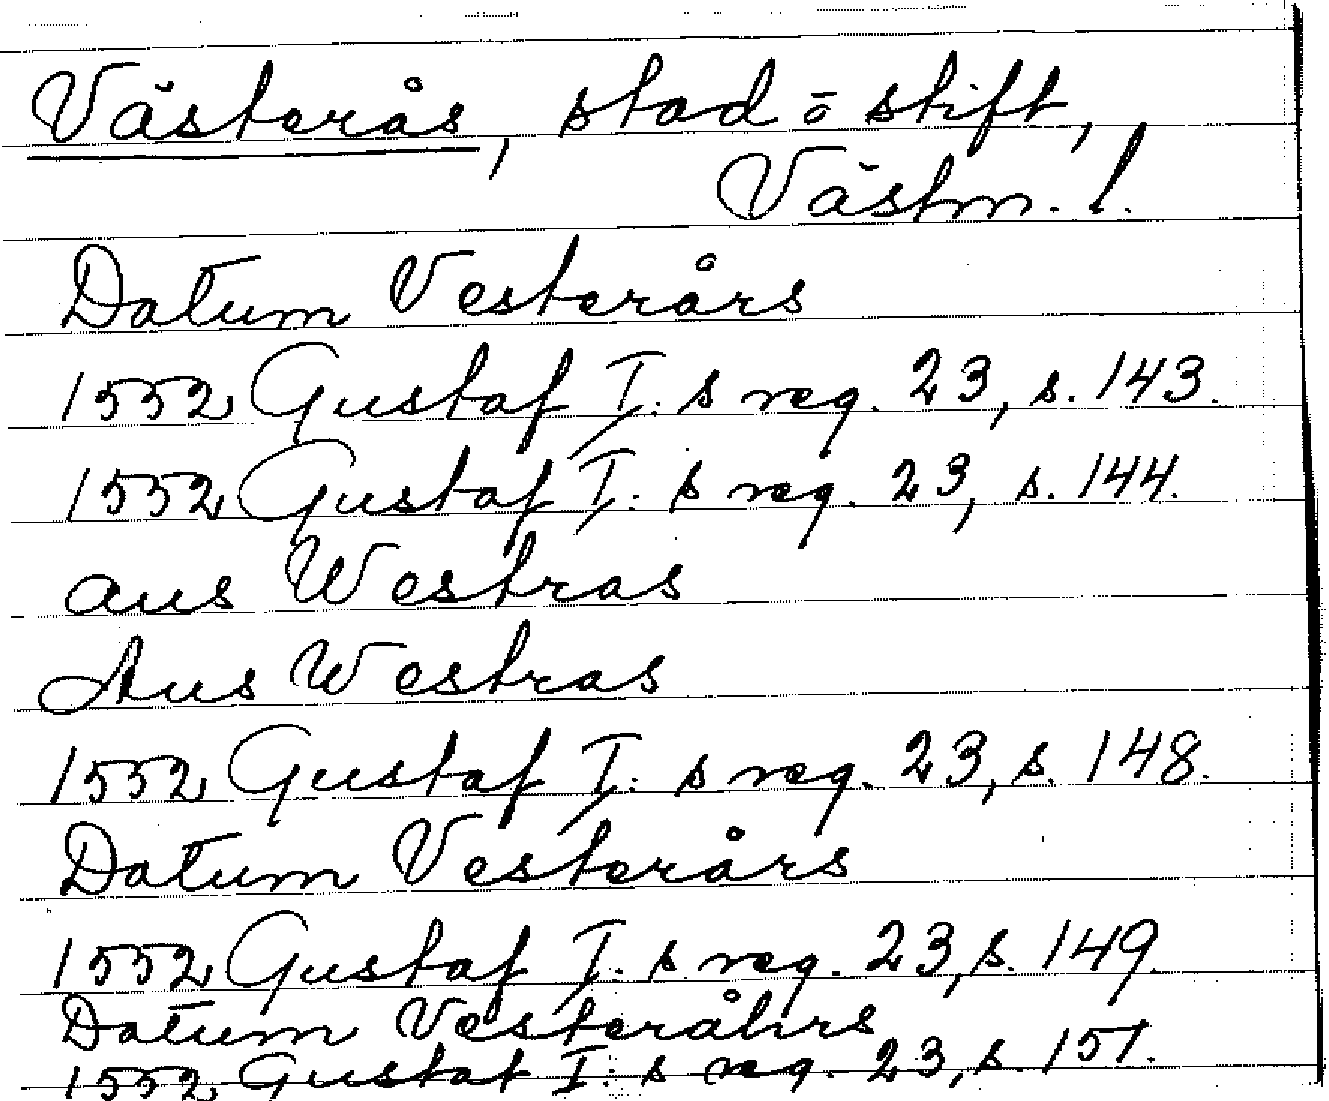 Västerås, stad o stift,
Västm. l.
Datum Vesterårs
1552 Gustaf I: s reg. 23, s. 143.
1552 Gustaf I: s reg. 23, s. 144.
aus Westras
Aus Westras
1552 Gustaf I: s reg. 23, s. 148.
Datum Vesterårs
1552 Gustaf I: s reg. 23, s. 149.
Datum Vesteråhrs
1552 Gustaf I: s reg. 23, s. 151.